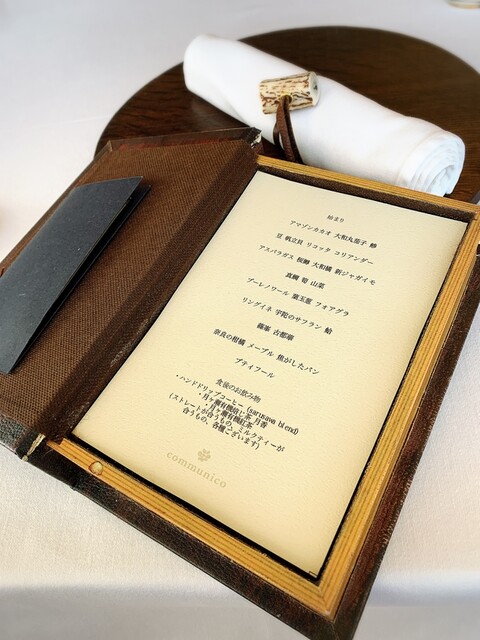 始まり
アマゾンカカオ 大和丸茄子 鯵
豆 帆立貝 リコッタ コリアンダー
アスパラガス 桜鱒 大和橘 新ジャガイモ
真鯛 筍 山菜
プーレノワール 葉玉葱 フォアグラ
リングイネ 宇陀のサフラン 蛤
古都華
奈良の柑橘 メープル 焦がしたパン
プティフール
食後のお飲み物
・ハンドドリップコーヒー (sarusawa blend)
・月ヶ瀬有機焙じ茶 月香
・月ヶ瀬有機紅茶
(ストレートが合うもの、ミルクティーが
合うもの、各種ございます)
communico